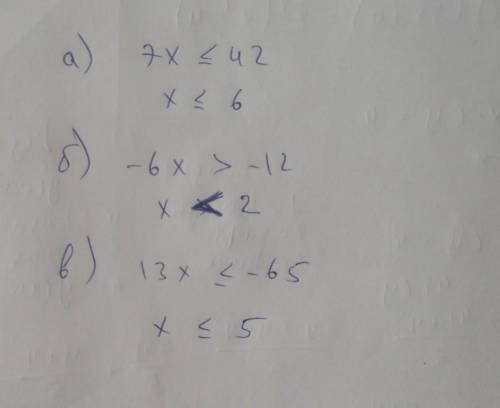 а) 7x ≤ 42
x ≤ 6
б) -6x > -12
x < 2
в) 13x ≤ -65
x ≤ 5